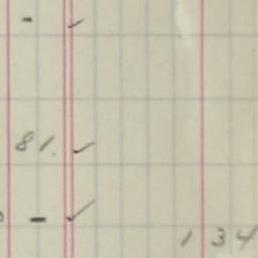 - ✓
81. ✓
- ✓
134